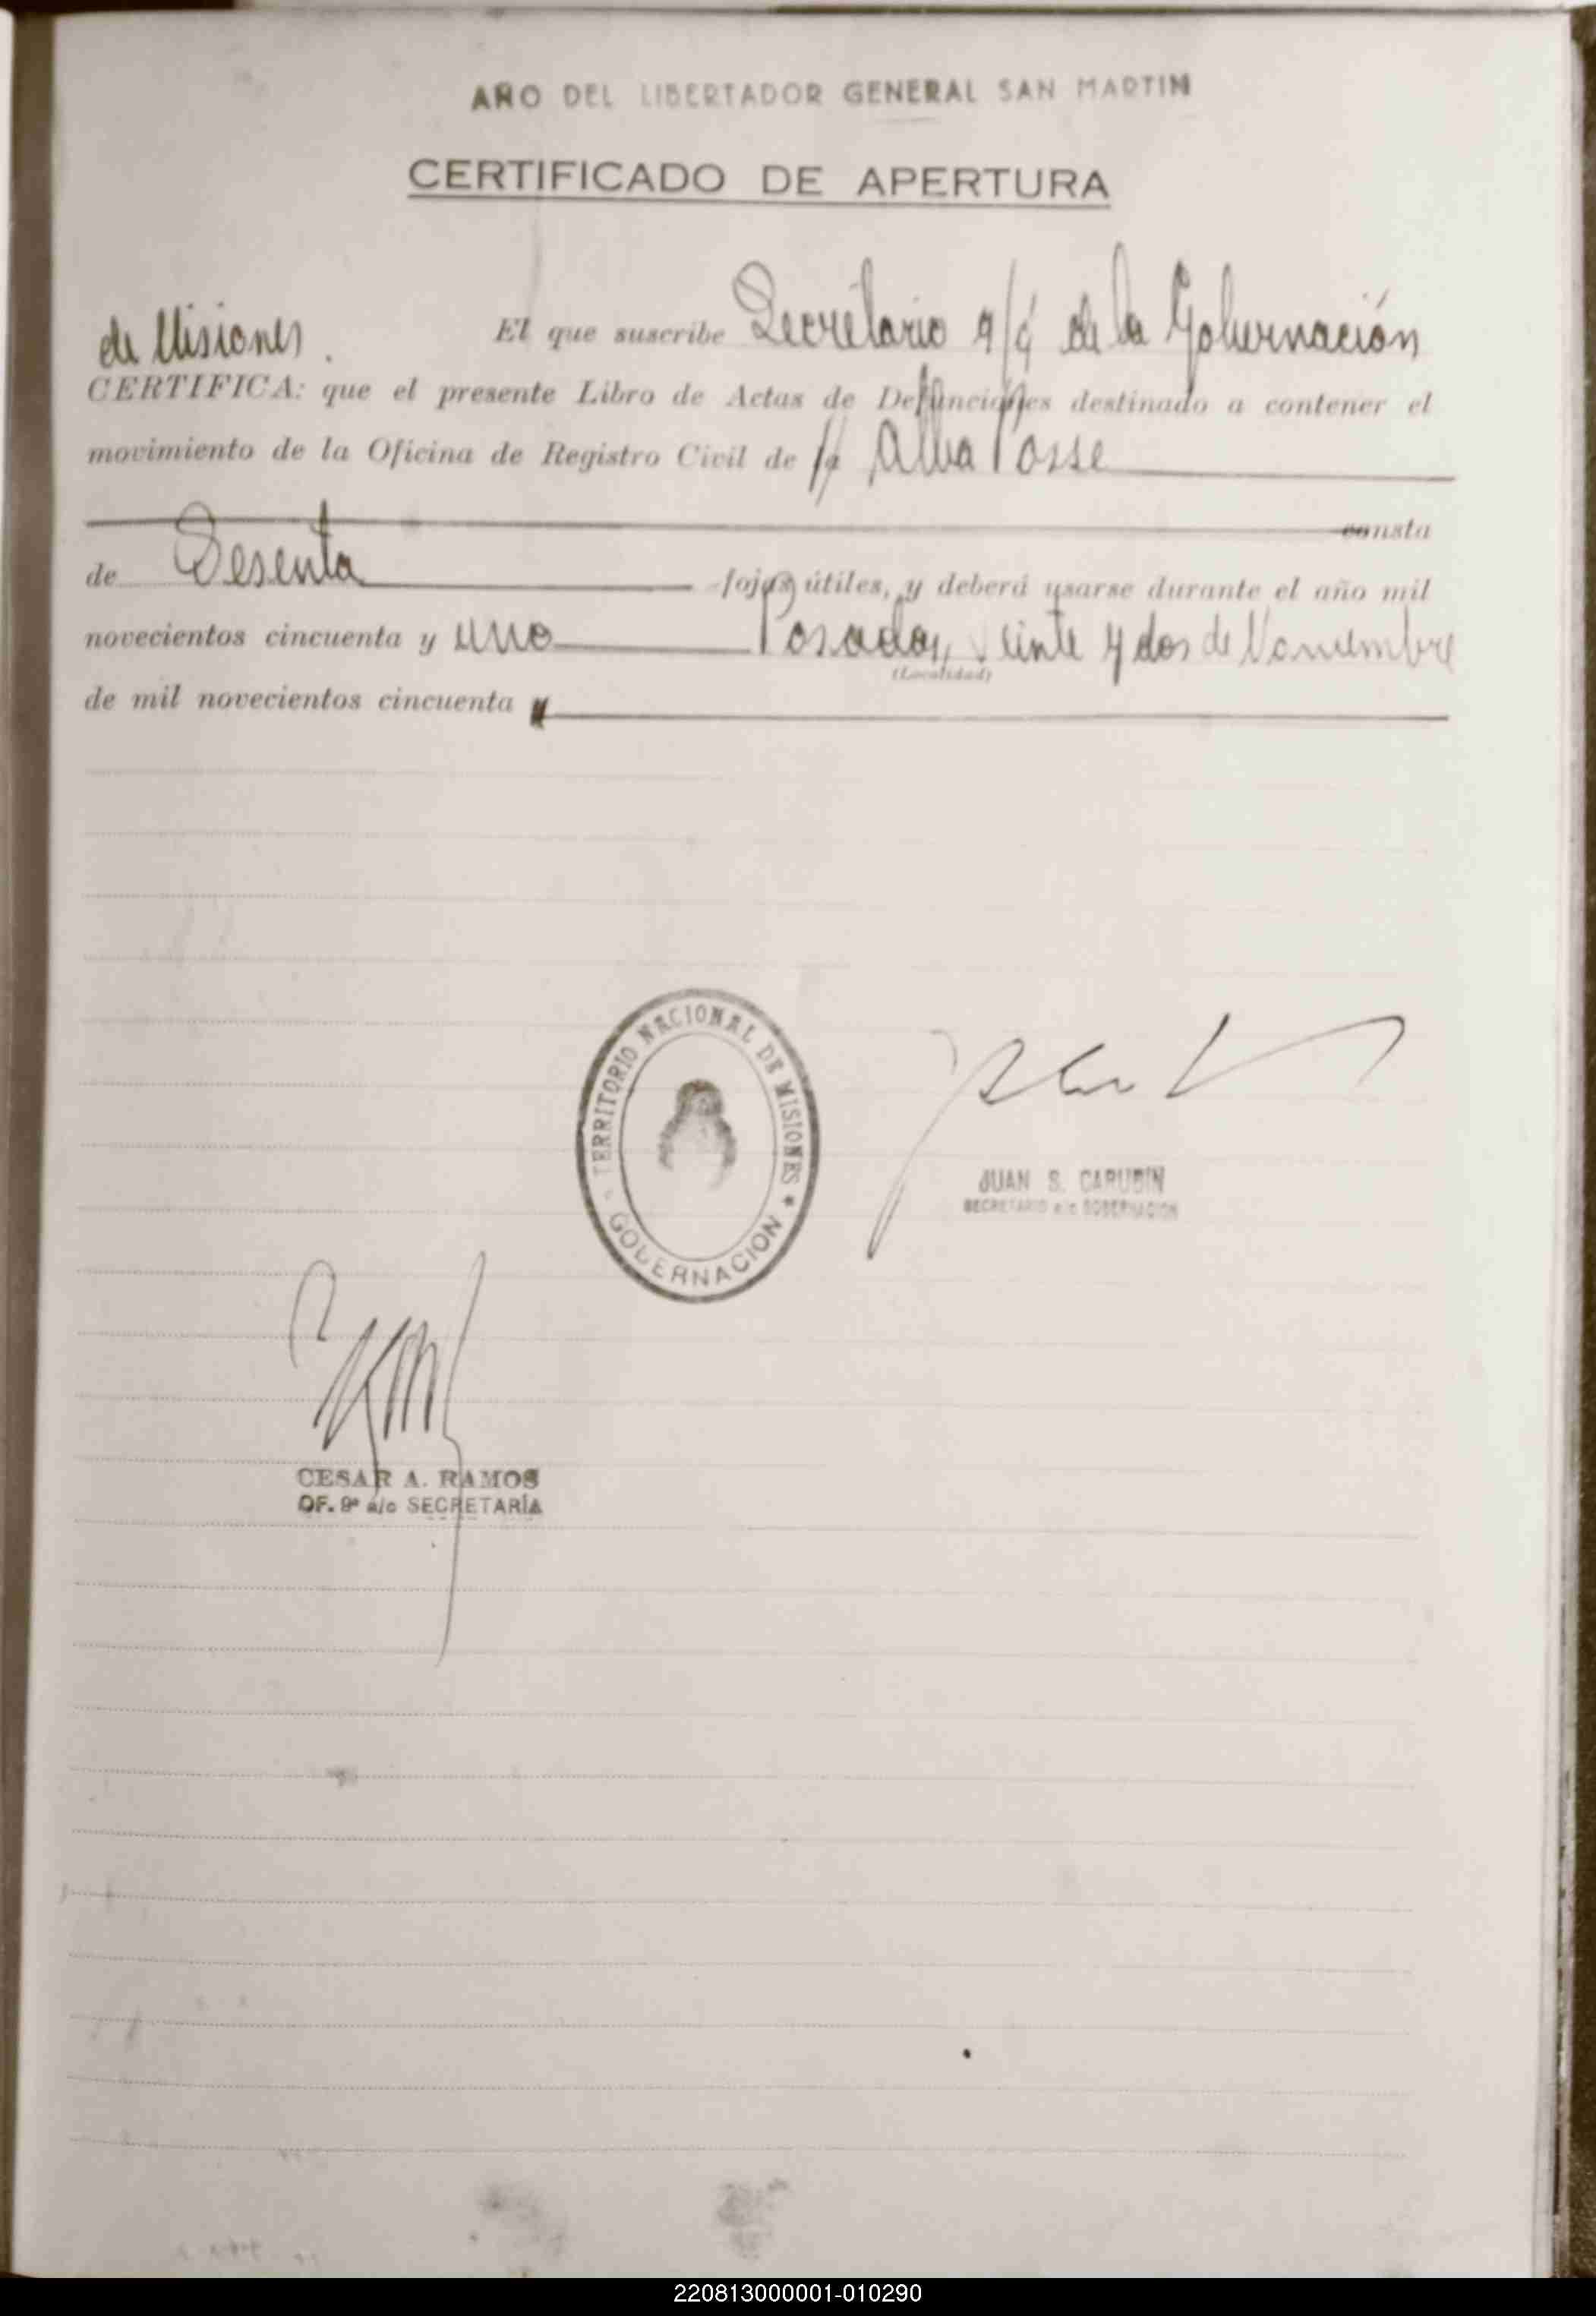 AÑO DEL LIBERTADOR GENERAL SAN MARTIN
CERTIFICADO DE APERTURA
El que suscribe Secretario a/c de la Gobernación
de Misiones.
CERTIFICA: que el presente Libro de Actas de Defunciones destinado a contener el
movimiento de la Oficina de Registro Civil de Alba Posse
consta
de Sesenta fojas útiles, y deberá usarse durante el año mil
novecientos cincuenta y uno Posadas, Veinte y dos de Noviembre
(Localidad)
de mil novecientos cincuenta
TERRITORIO NACIONAL DE MISIONES *
GOBERNACION
JUAN S. CARUBIN
SECRETARIO a/c GOBERNACION
CESAR A. RAMOS
OF. 9º a/c SECRETARÍA
220813000001-010290